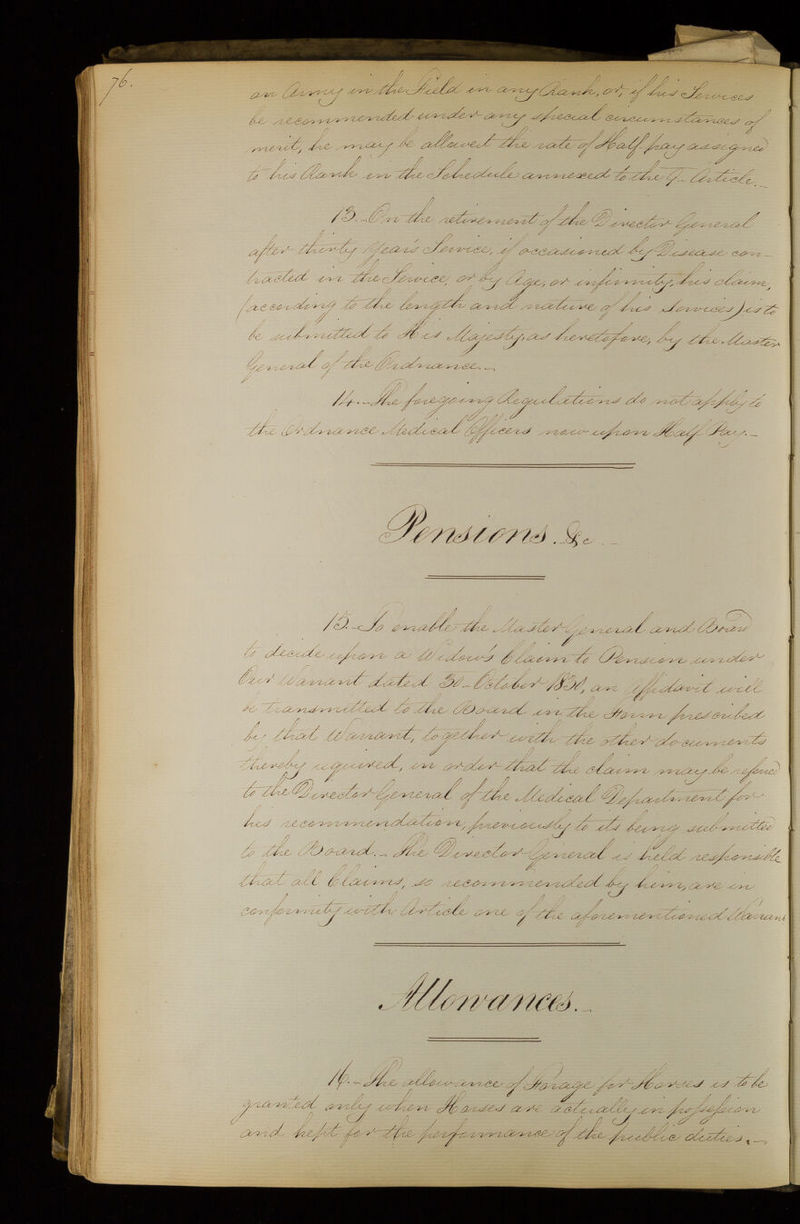 76.
an Army in the Field in any Rank, or, if his Services
be recommended under any special circumstances of
merit, he may be allowed the rate of Half pay assigned
to his Rank in the Schedule annexed to the 7- Article.-
13.-On the retirement of the Director General
after thirty Years Service, if occasioned by Disease con-
tracted in the Service, or by Age, or infirmity, his claim,
(according to the length and nature of his Services) is to
be submitted to His Majesty, as heretofore, by the Master
General of the Ordnance.-
14.-The foregoing Regulations do not apply to
the Ordnance Medical Officers now upon Half Pay.-
Pensions. &c.-
15.-To enable the Master General and Board
to decide upon a Widow's Claim to Pension under
Our Warrant dated 30-October 1830, an Affidavit will
be transmitted to the Board in the Form prescribed
by that Warrant, together with the other documents
thereby required, in order that the claim may be referred
to the Director General of the Medical Department for
his recommendation, previously to its being submitted
to the Board.-The Director General is held responsible
that all Claims, so recommended by him, are in
conformity with Article one of the aforementioned Warrant
Allowances.-
16.-The allowance of Forage for Horses is to be
granted only when Horses are actually in possession
and kept for the performance of the public duties.-